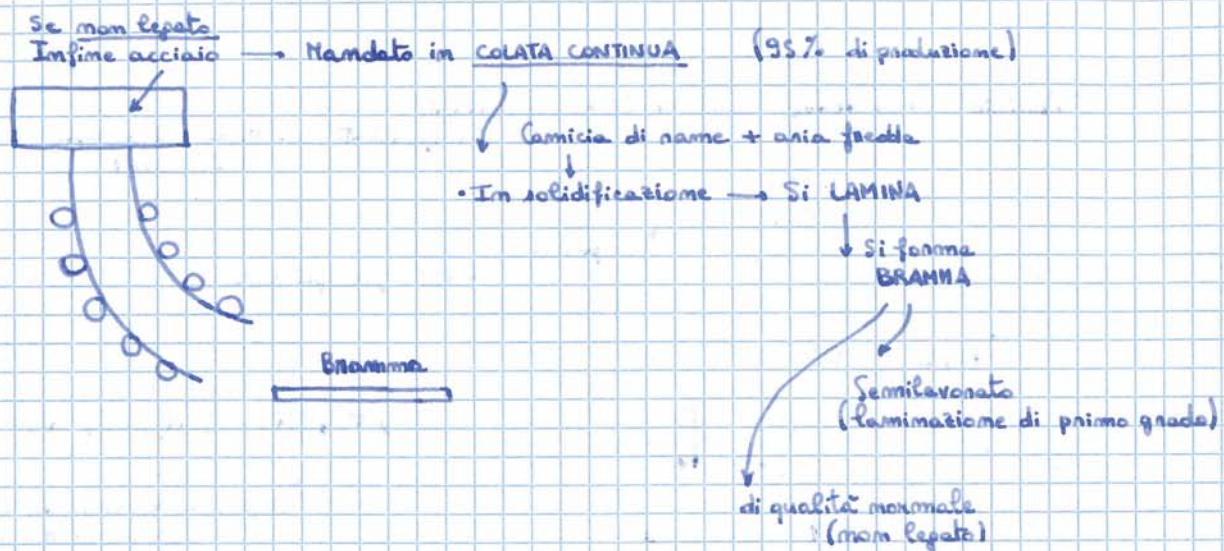 Se non legato
Infine acciaio → Mandato in COLATA CONTINUA (95% di produzione)
Camicia di rame + aria fredda
• In solidificazione → Si LAMINA
Si forma
BRAMMA
Bramma
Semilavorato
(laminazione di primo grado)
di qualità normale
(non legato)